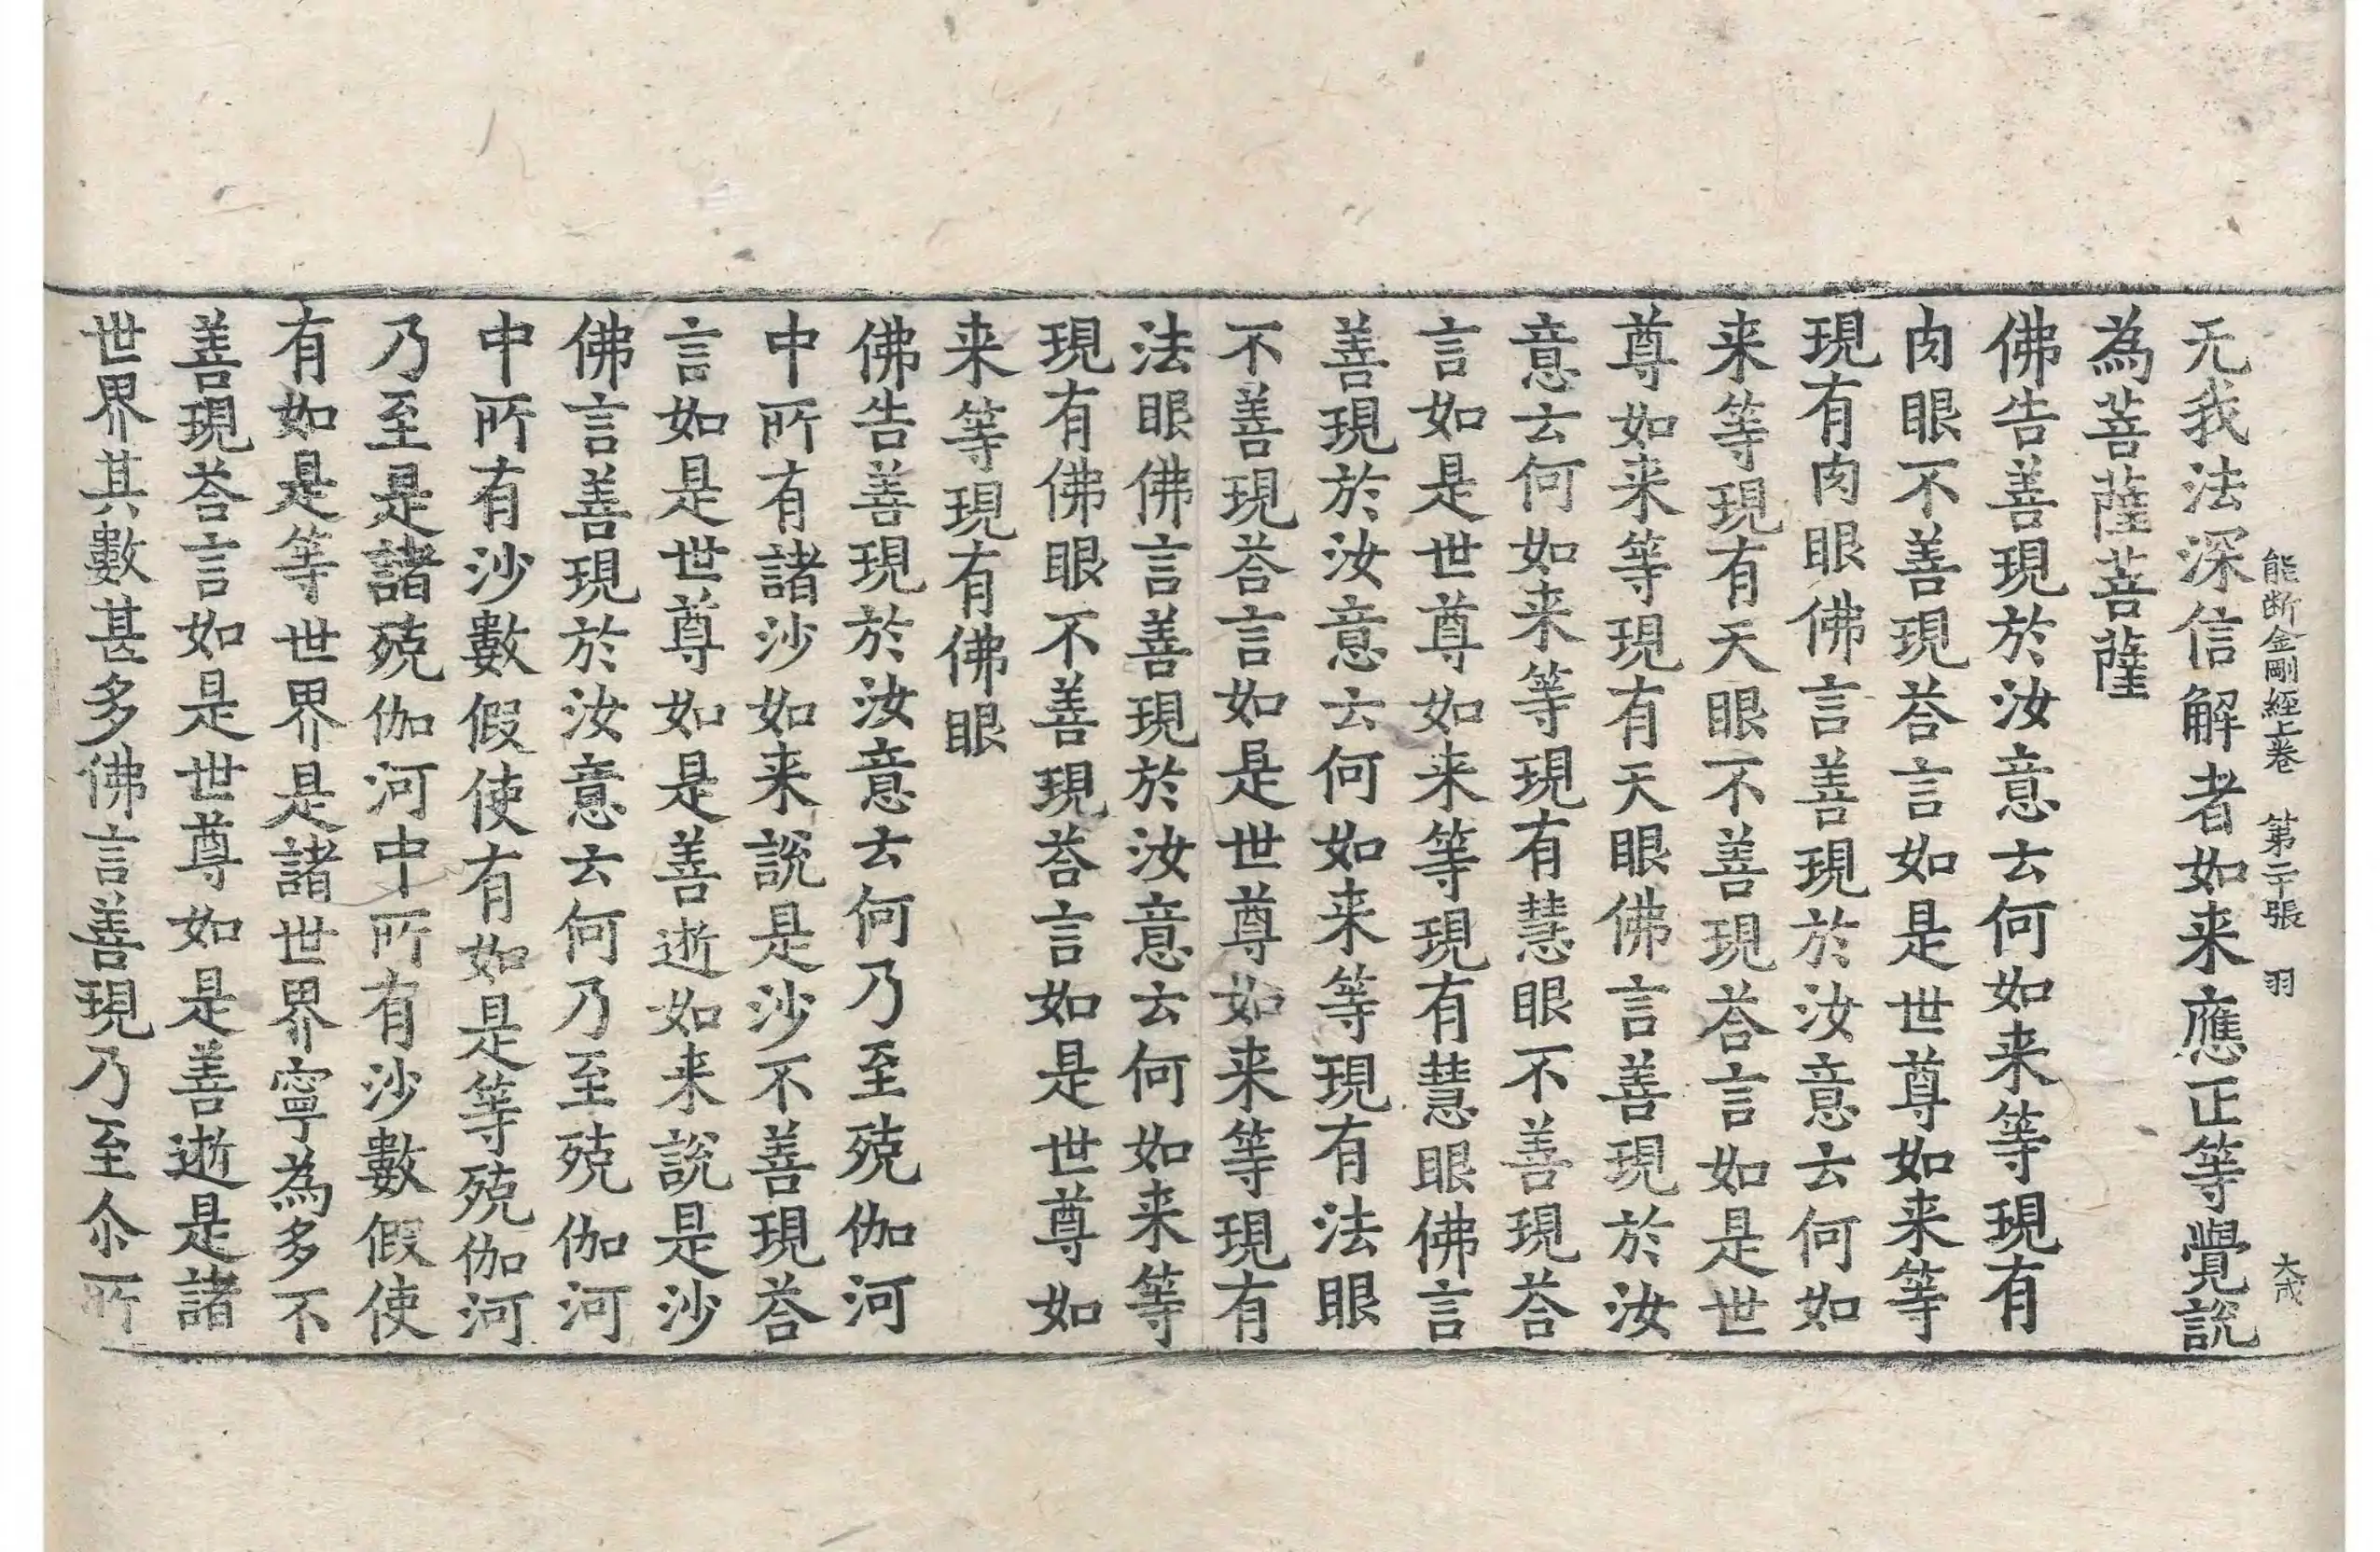 能断金剛經上卷 第二十張 羽 大成
无我法深信解者如来應正等覺說
為菩薩菩薩
佛告善現於汝意云何如来等現有
肉眼不善現荅言如是世尊如来等
現有肉眼佛言善現於汝意云何如
来等現有天眼不善現荅言如是世
尊如来等現有天眼佛言善現於汝
意云何如来等現有慧眼不善現荅
言如是世尊如来等現有慧眼佛言
善現於汝意云何如来等現有法眼
不善現荅言如是世尊如来等現有
法眼佛言善現於汝意云何如来等
現有佛眼不善現荅言如是世尊如
来等現有佛眼
佛告善現於汝意云何乃至殑伽河
中所有諸沙如来說是沙不善現荅
言如是世尊如是善逝如来說是沙
佛言善現於汝意云何乃至殑伽河
中所有沙數假使有如是等殑伽河
乃至是諸殑伽河中所有沙數假使
有如是等世界是諸世界寧為多不
善現荅言如是世尊如是善逝是諸
世界其數甚多佛言善現乃至尒所